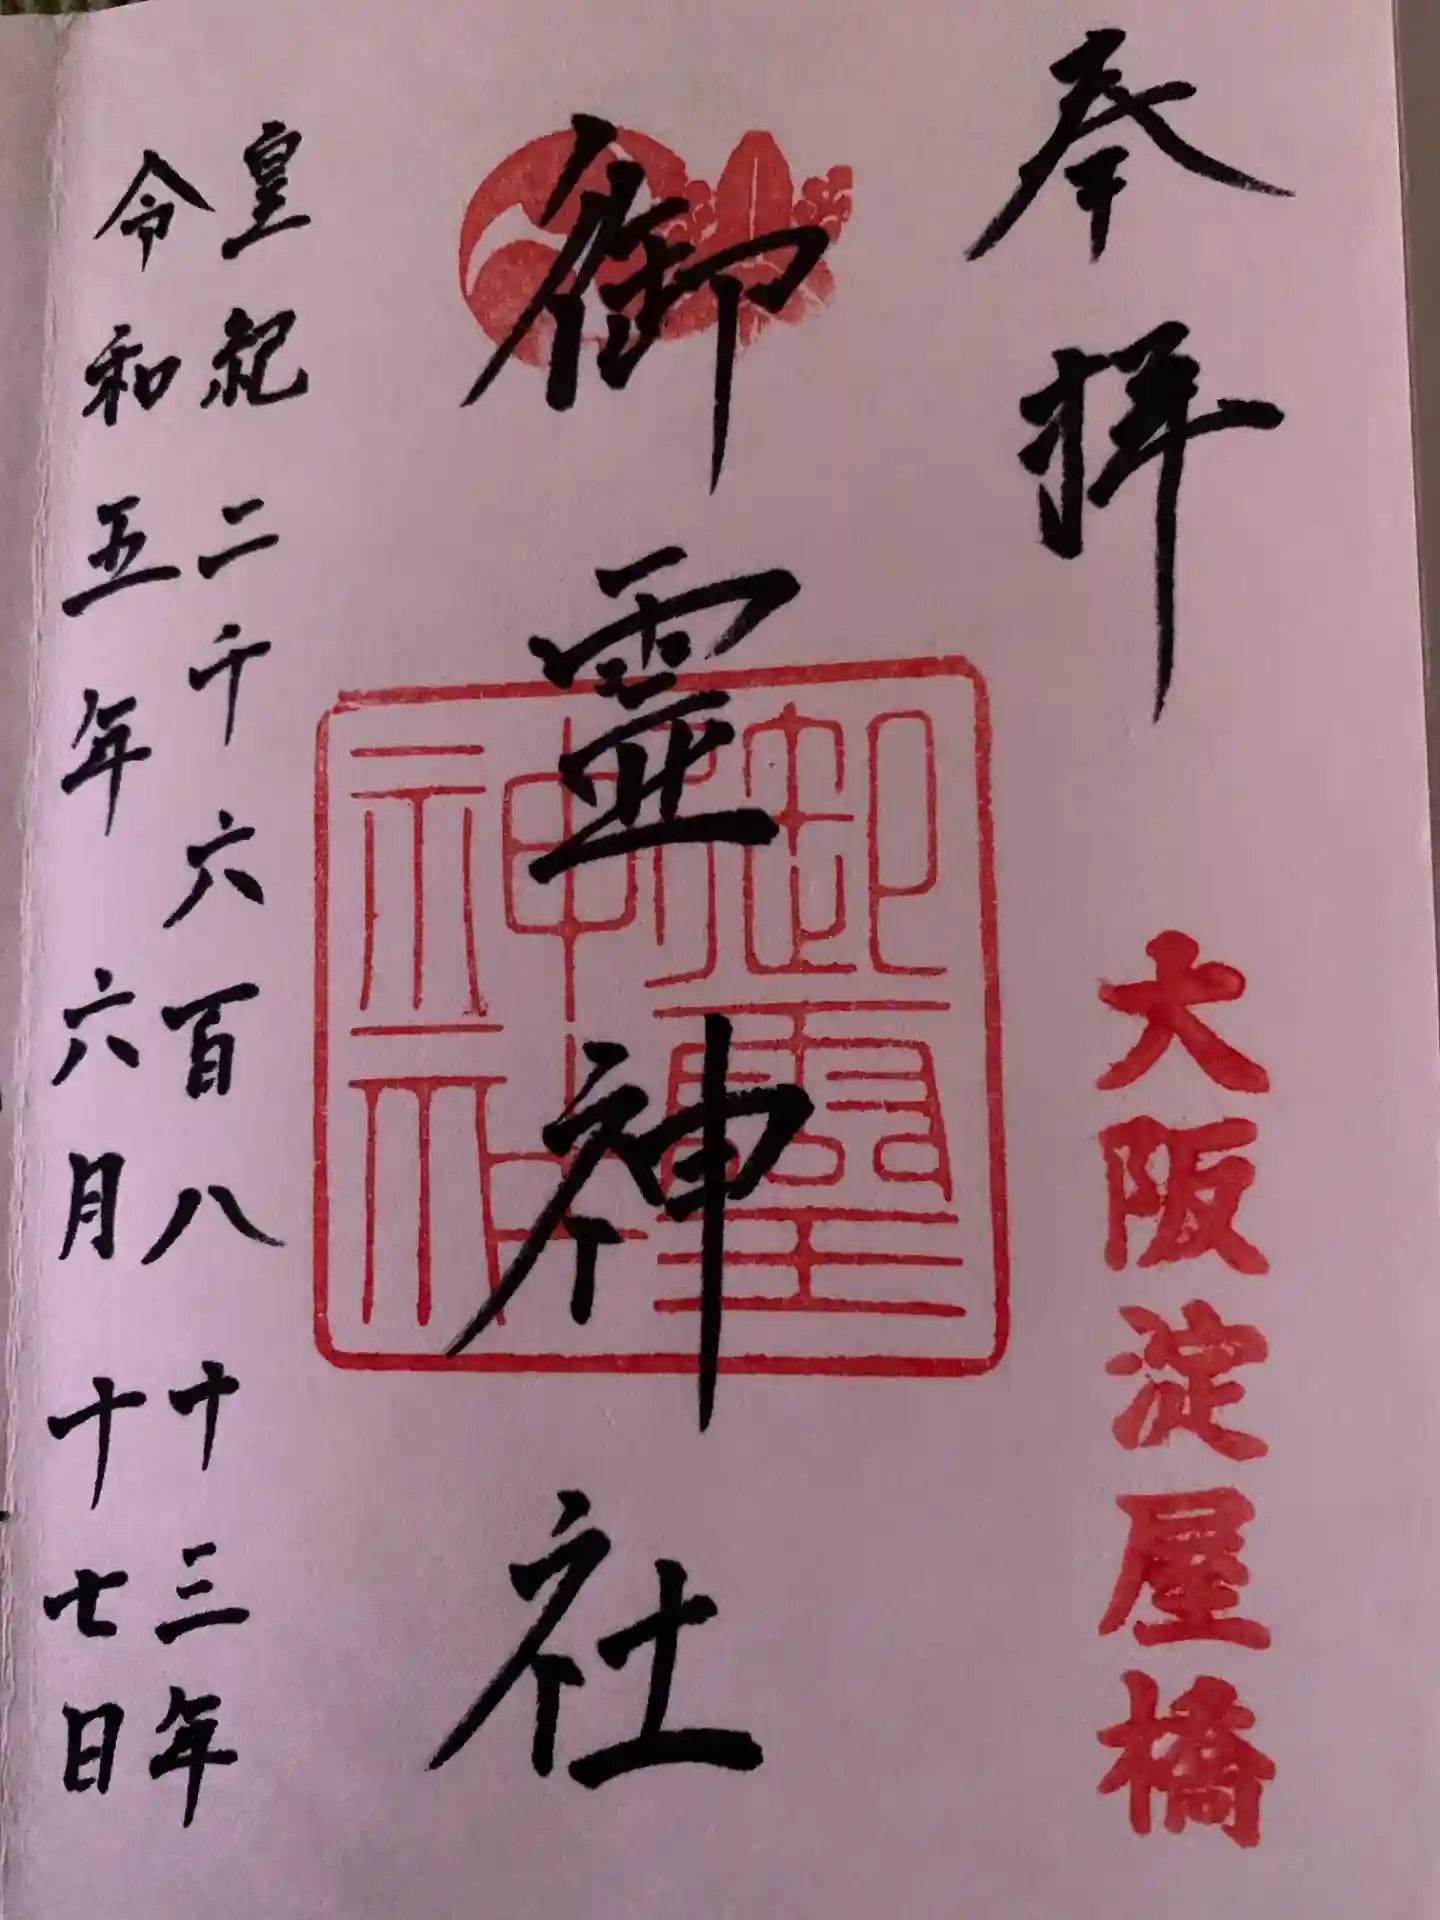 奉拝
大阪淀屋橋
御霊神社
御靈神社
皇紀二千六百八十三年
令和五年六月十七日